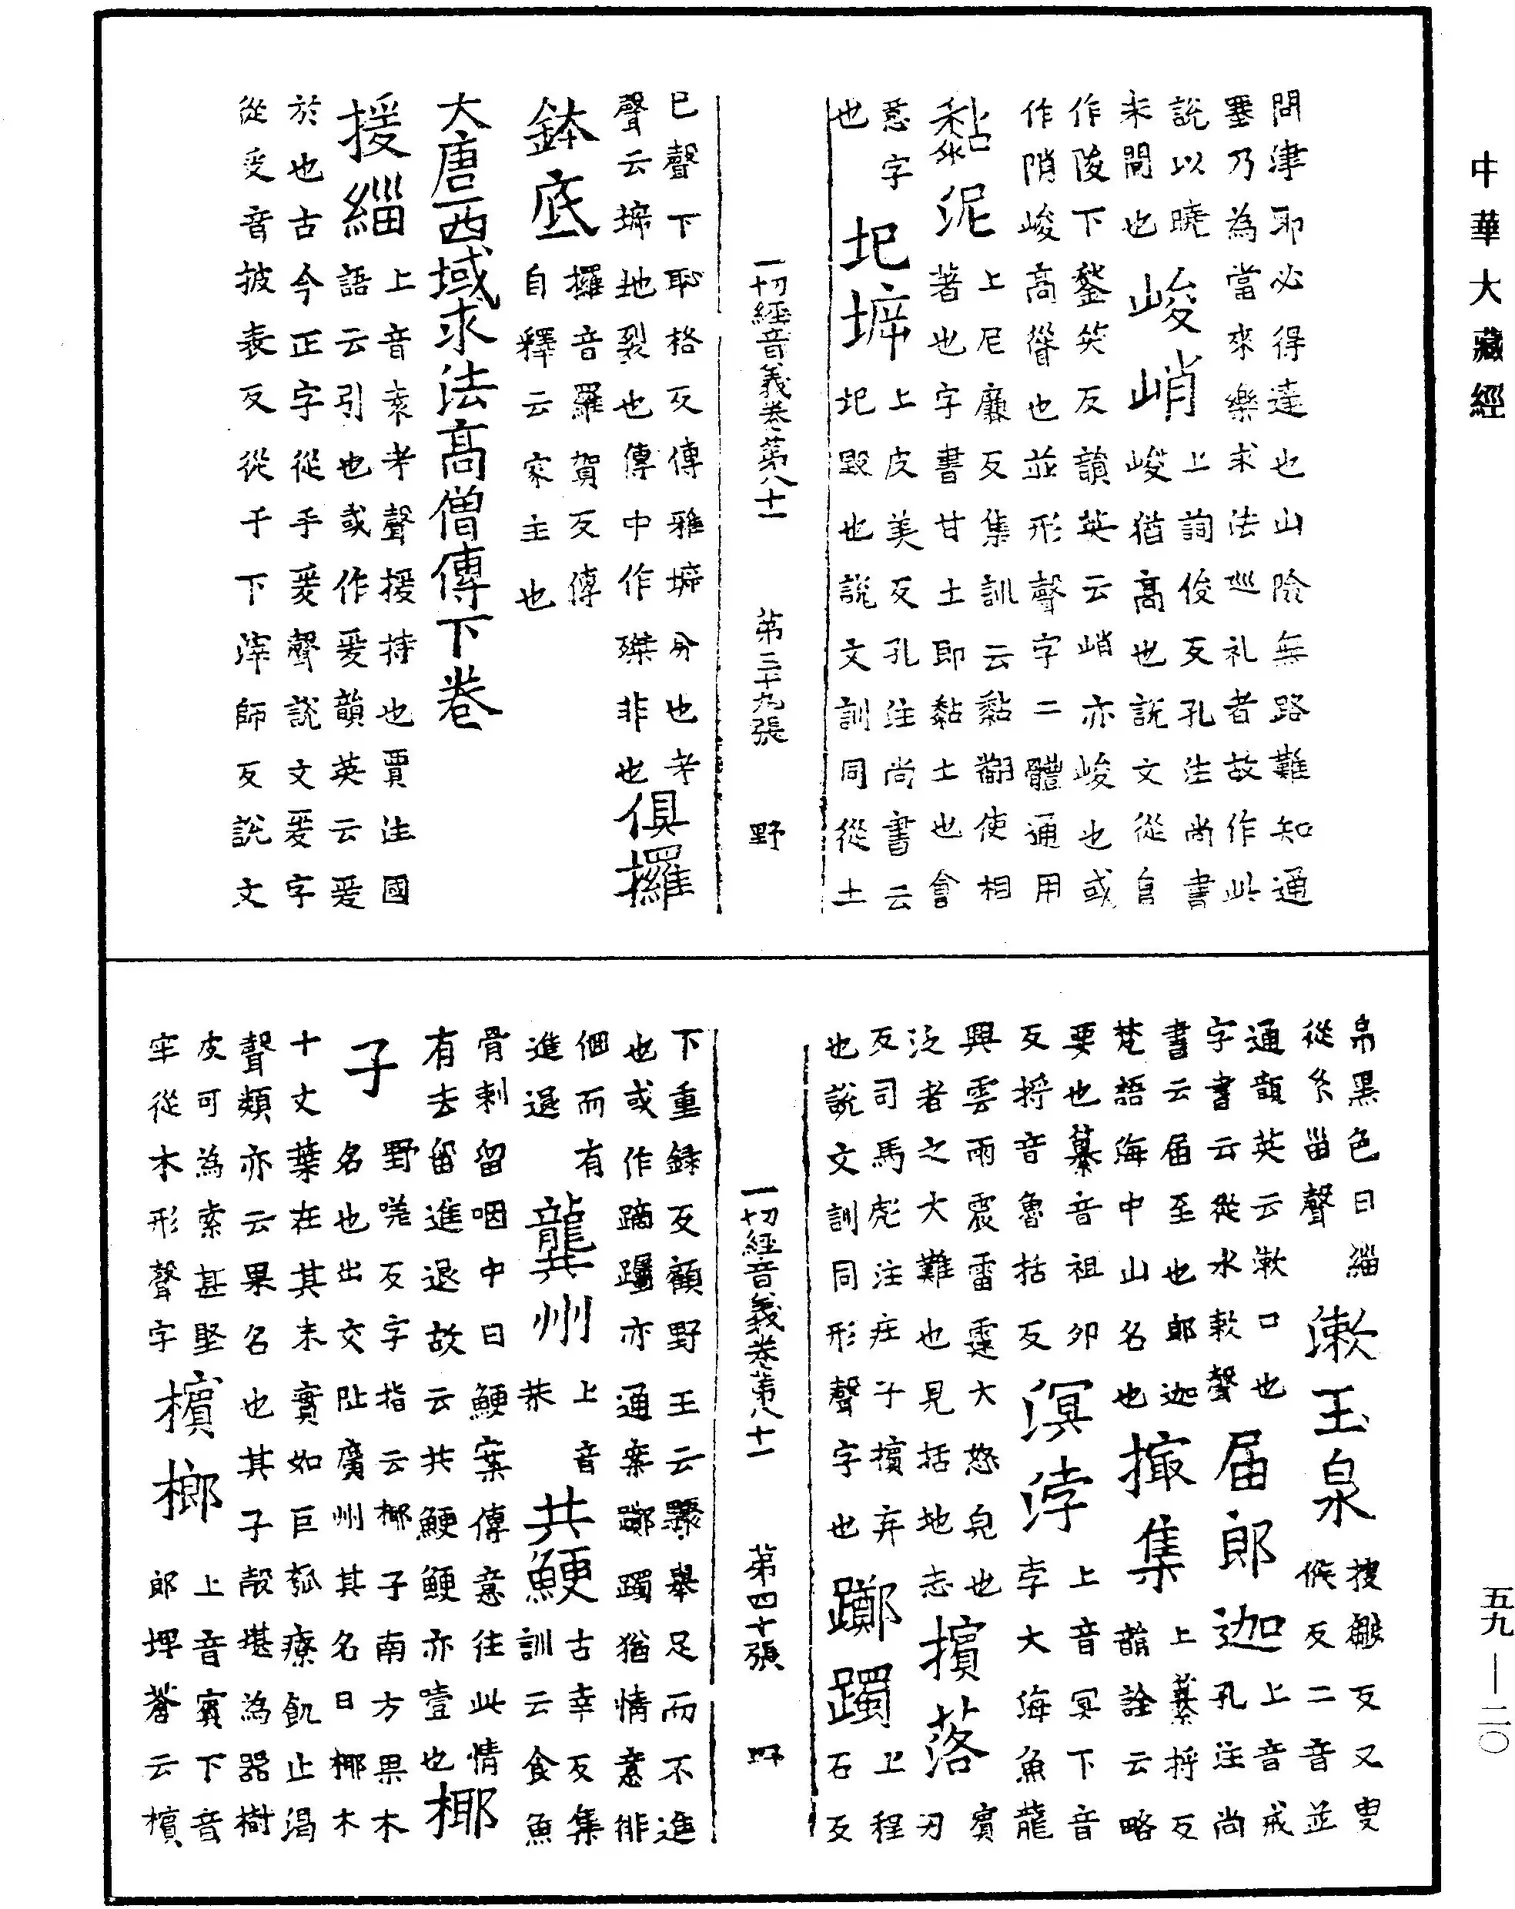 中華大藏經
問津耶必得達也山險無路難知通
塞乃為當來樂求法巡礼者故作此
說以曉上詢俊反孔注尚書
未聞也峻峭峻猶高也說文從自
作陖下鍫笑反韻英云峭亦峻也或
作陗峻高聳也並形聲字二體通用
黏泥上尼廉反集訓云黏䵑使相
著也字書甘土土即黏土也會
意字圮㙤上皮美反孔注尚書云
也圮毀也說文訓同從土
一切經音義卷第八十一 第三十九張 野
巳聲下恥格反傳雅㙤分也考
聲云㙤地裂也傳中作㻎非也俱攞
鉢底攞音羅賀反傳
自釋云家主也
大唐西域求法高僧傳下卷
援緇上音袁考聲援持也賈注國
語云引也或作爰韻英云爰
於也古今正字從手爰聲說文爰字
從受音披表反從于下滓師反說文
帛黑色曰緇
從糸甾聲漱玉泉搜皺反又叟
候反二音並
通韻英云漱口也
字書云從水欶聲届郎迦上音戒
孔注尚
書云届至也郎迦
梵語海中山名也撮集上纂捋反
韻詮云略
要也纂音祖夘
反捋音魯括反溟渤上音冥下音
孛大海魚龍
興雲雨震雷霆大怒皃也
泛者之大難也見括地志擯落賔
刃
反司馬彪注莊子擯弃
也說文訓同形聲字也躑躅上程
石反
一切經音義卷第八十一 第四十張 野
下重録反顧野王云驟舉足而不進
也或作蹢䠱亦通案躑躅猶情意徘
徊而有
進退龔州上音
恭共鯁古幸反集
訓云食魚
骨刺留咽中曰鯁案傳意往此情
有去留進退故云共鯁鯁亦壹也椰
子野嗟反字指云椰子南方果木
名也出交阯廣州其名曰椰木
十丈葉在其末實如巨瓠療飢止渴
聲類亦云果名也其子殼堪為器樹
皮可為索甚堅
牢從木形聲字檳榔上音賓下音
郎埤蒼云檳
五九—二〇